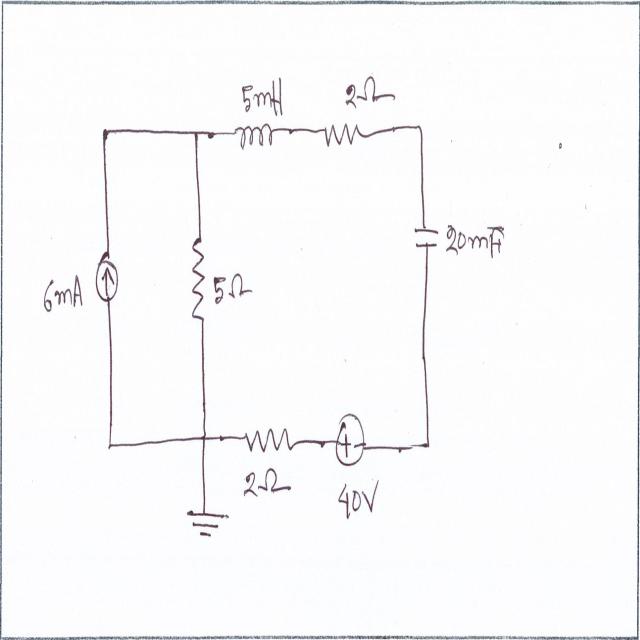 5mH
2Ω
20mF
6mA
5Ω
2Ω
40V